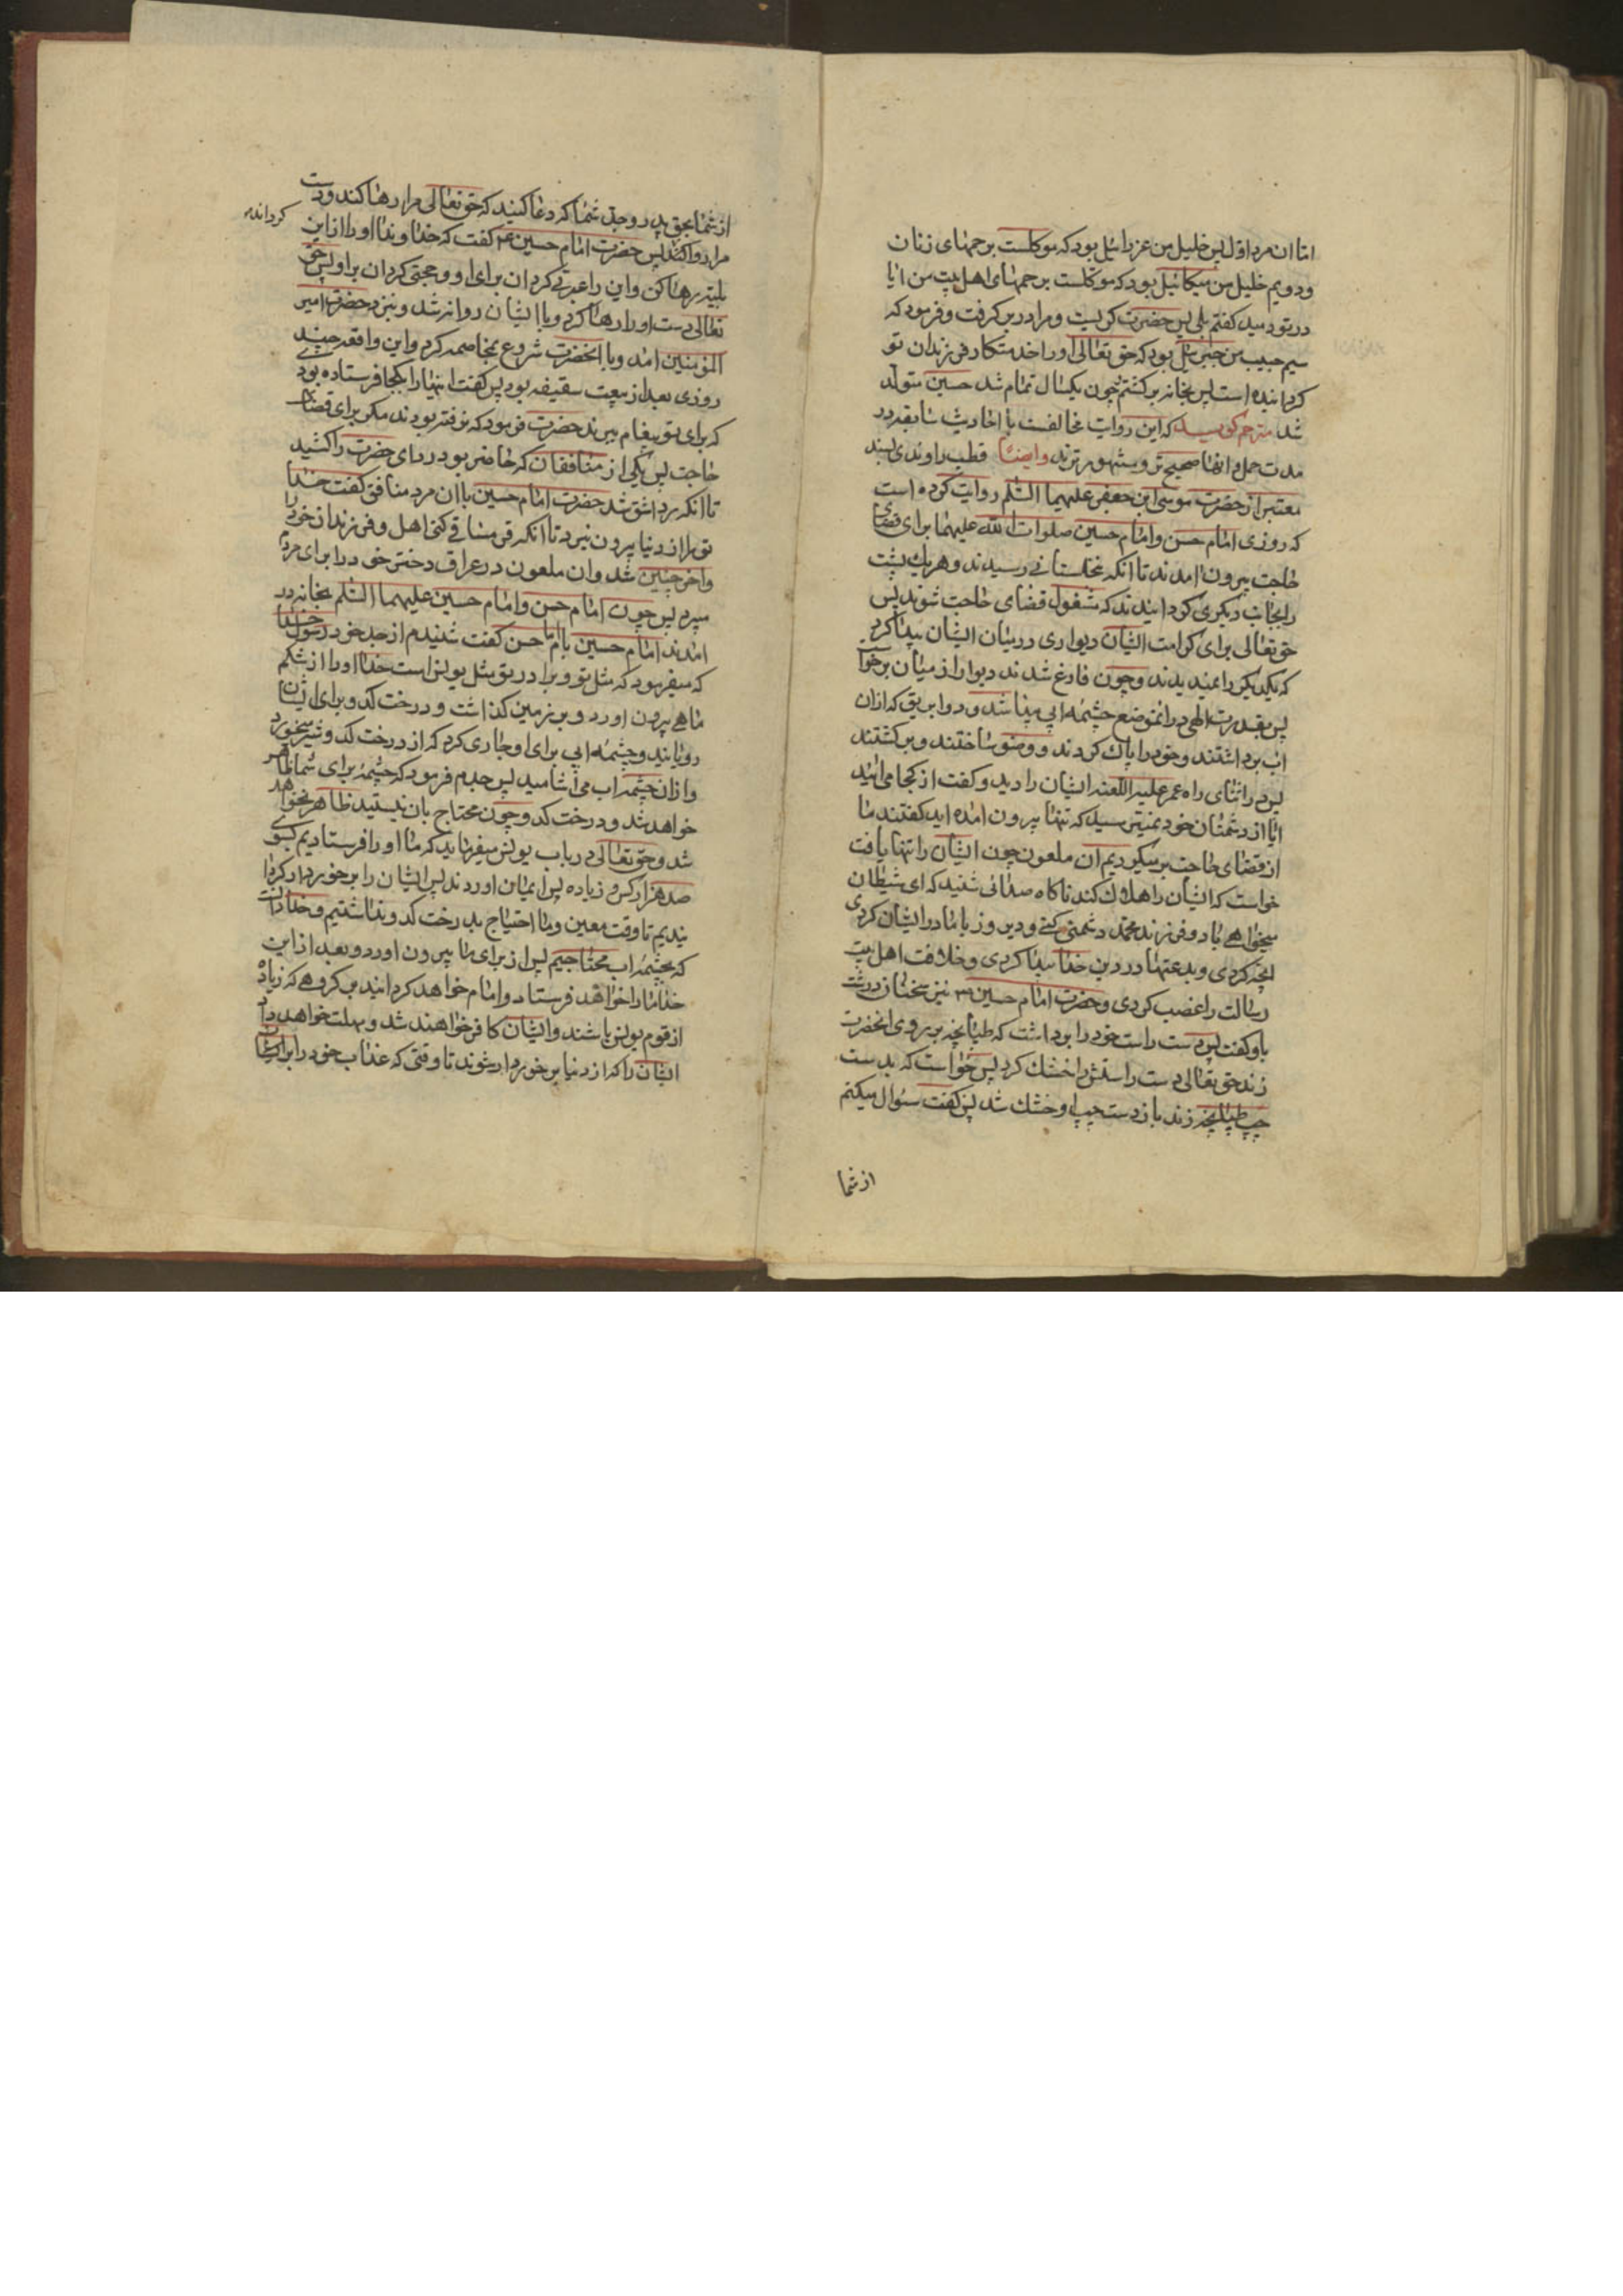 اما ان مرد اول پس خلیل من عزرائیل بود که موکلست برحمهای زنان
و دویم خلیل من میکائیل بود که موکلست برحمهای اهل بیت من ایا
در تو دمید کفتم بلی پس حضرت کریست و مرا در بر کرفت و فرمود که
سیم حبیب من جبرئیل بود که حق تعالی او را خدمتکار فرزندان تو
کردانیده است پس بخانه برکشتم چون یکسال تمام شد حسین متولد
شد مترجم کوید که این روایت مخالفست با احادیث سابقه در
مدت حمل و انها صحیح تر و مشهور ترند وایضا قطب راوندی بسند
معتبر از حضرت موسی ابن جعفر علیهما السلم روایت کرده است
که روزی امام حسن و امام حسین صلوات الله علیهما برای قضای
حاجت بیرون امدند تا انکه بنخلستانی رسیدند و هر یک پشت
را بجانب دیکری کردانیدند که مشغول قضای حاجت شوند پس
حق تعالی برای کرامت ایشان دیواری در میان ایشان پیدا کرد
که یکدیکر را نمیدیدند و چون فارغ شدند دیوار از میان برخوا
پس بقدرت الهی در انموضع چشمه ابی پیدا شد و دو ابریق که ازان
اب برداشتند و خود را پاک کردند و وضو ساختند و برکشتند
پس در اثنای راه عمر علیه اللعنه ایشان را دید و کفت از کجا می ائید
ایا از دشمنان خود نمیترسید که تنها بیرون امده اید کفتند ما
از قضای حاجت برمیکردیم ان ملعون چون ایشان را تنها یافت
خواست که ایشان را هلاک کند ناکاه صدائی شنید که ای شیطان
میخواهی با دو فرزند محمد دشمنی کنی و دیروز با مادر ایشان کردی
انچه کردی و بدعتها در دین خدا پیدا کردی و خلافت اهل بیت
رسالت را غصب کردی و حضرت امام حسین ع نیز سخنان درشت
باو کفت پس دست راست خود را برداشت که طپانچه بر روی انحضرت
زند حق تعالی دست راستش را خشک کرد پس خواست که بدست
چپ طپانچه زند باز دست چپ او خشک شد پس کفت سئوال میکنم
از شما
از شما بحق پدر و جد شما که دعا کنید که حق تعالی مرا رها کند و دست
مرا وا کند پس حضرت امام حسین ع کفت که خداوندا او را از این
کرداند
بلیه رها کن و این را عبرتی کردان برای او و حجتی کردان بر او پس حق
تعالی دست او را رها کرد و با ایشان روانه شد و بنزد حضرت امیر
المؤمنین امد و با انحضرت شروع بمخاصمه کرد و این واقعه چند
روزی بعد از بیعت سقیفه بود پس کفت اینها را بکجا فرستاده بودی
که برای تو پیغام ببرند حضرت فرمود که نرفته بودند مکر برای قضای
حاجت پس یکی از منافقان که حاضر بود ردای حضرت را کشید
تا انکه رداشق شد حضرت امام حسین با ان مرد منافق کفت خدا
تو را از دنیا بیرون نبرد تا انکه قرمساقی کنی اهل و فرزندان خود را
و اخر چنین شد و ان ملعون در عراق دختر خود را برای مردم
میبرد پس چون امام حسن و امام حسین علیهما السلم بخانه در
امدند امام حسین با امام حسن کفت شنیدم از جد خود رسول خدا
که میفرمود که مثل تو و برادر تو مثل یونس است خدا او را از شکم
ماهی بیرون اورد و بر زمین کذاشت و درخت کدو برای ایشان
رویانید و چشمه ابی برای او جاری کرد که از درخت کدو ثمر میخورد
و از ان چشمه اب می اشامید پس جدم فرمود که چشمه برای شما ظاهر
خواهد شد و درخت کدو چون محتاج بان نیستید ظاهر نخواهد
شد و حق تعالی در باب یونس میفرماید که ما او را فرستادیم بسوی
صد هزار کس و زیاده پس ایمان اوردند پس ایشان را برخوردار کردا
نیدیم تا وقت معین و ما احتیاج بدرخت کدو نداشتیم و خدا دانست
که بچشمه اب محتاجیم پس از برای ما بیرون اورد و بعد از این
خدا ما را خواهد فرستاد و امام خواهد کردانید بر کروهی که زیاده
از قوم یونس باشند و ایشان کافر خواهند شد و مهلت خواهد داد
ایشان را که از دنیا برخوردار شوند تا وقتی که عذاب خود را بر ایشان